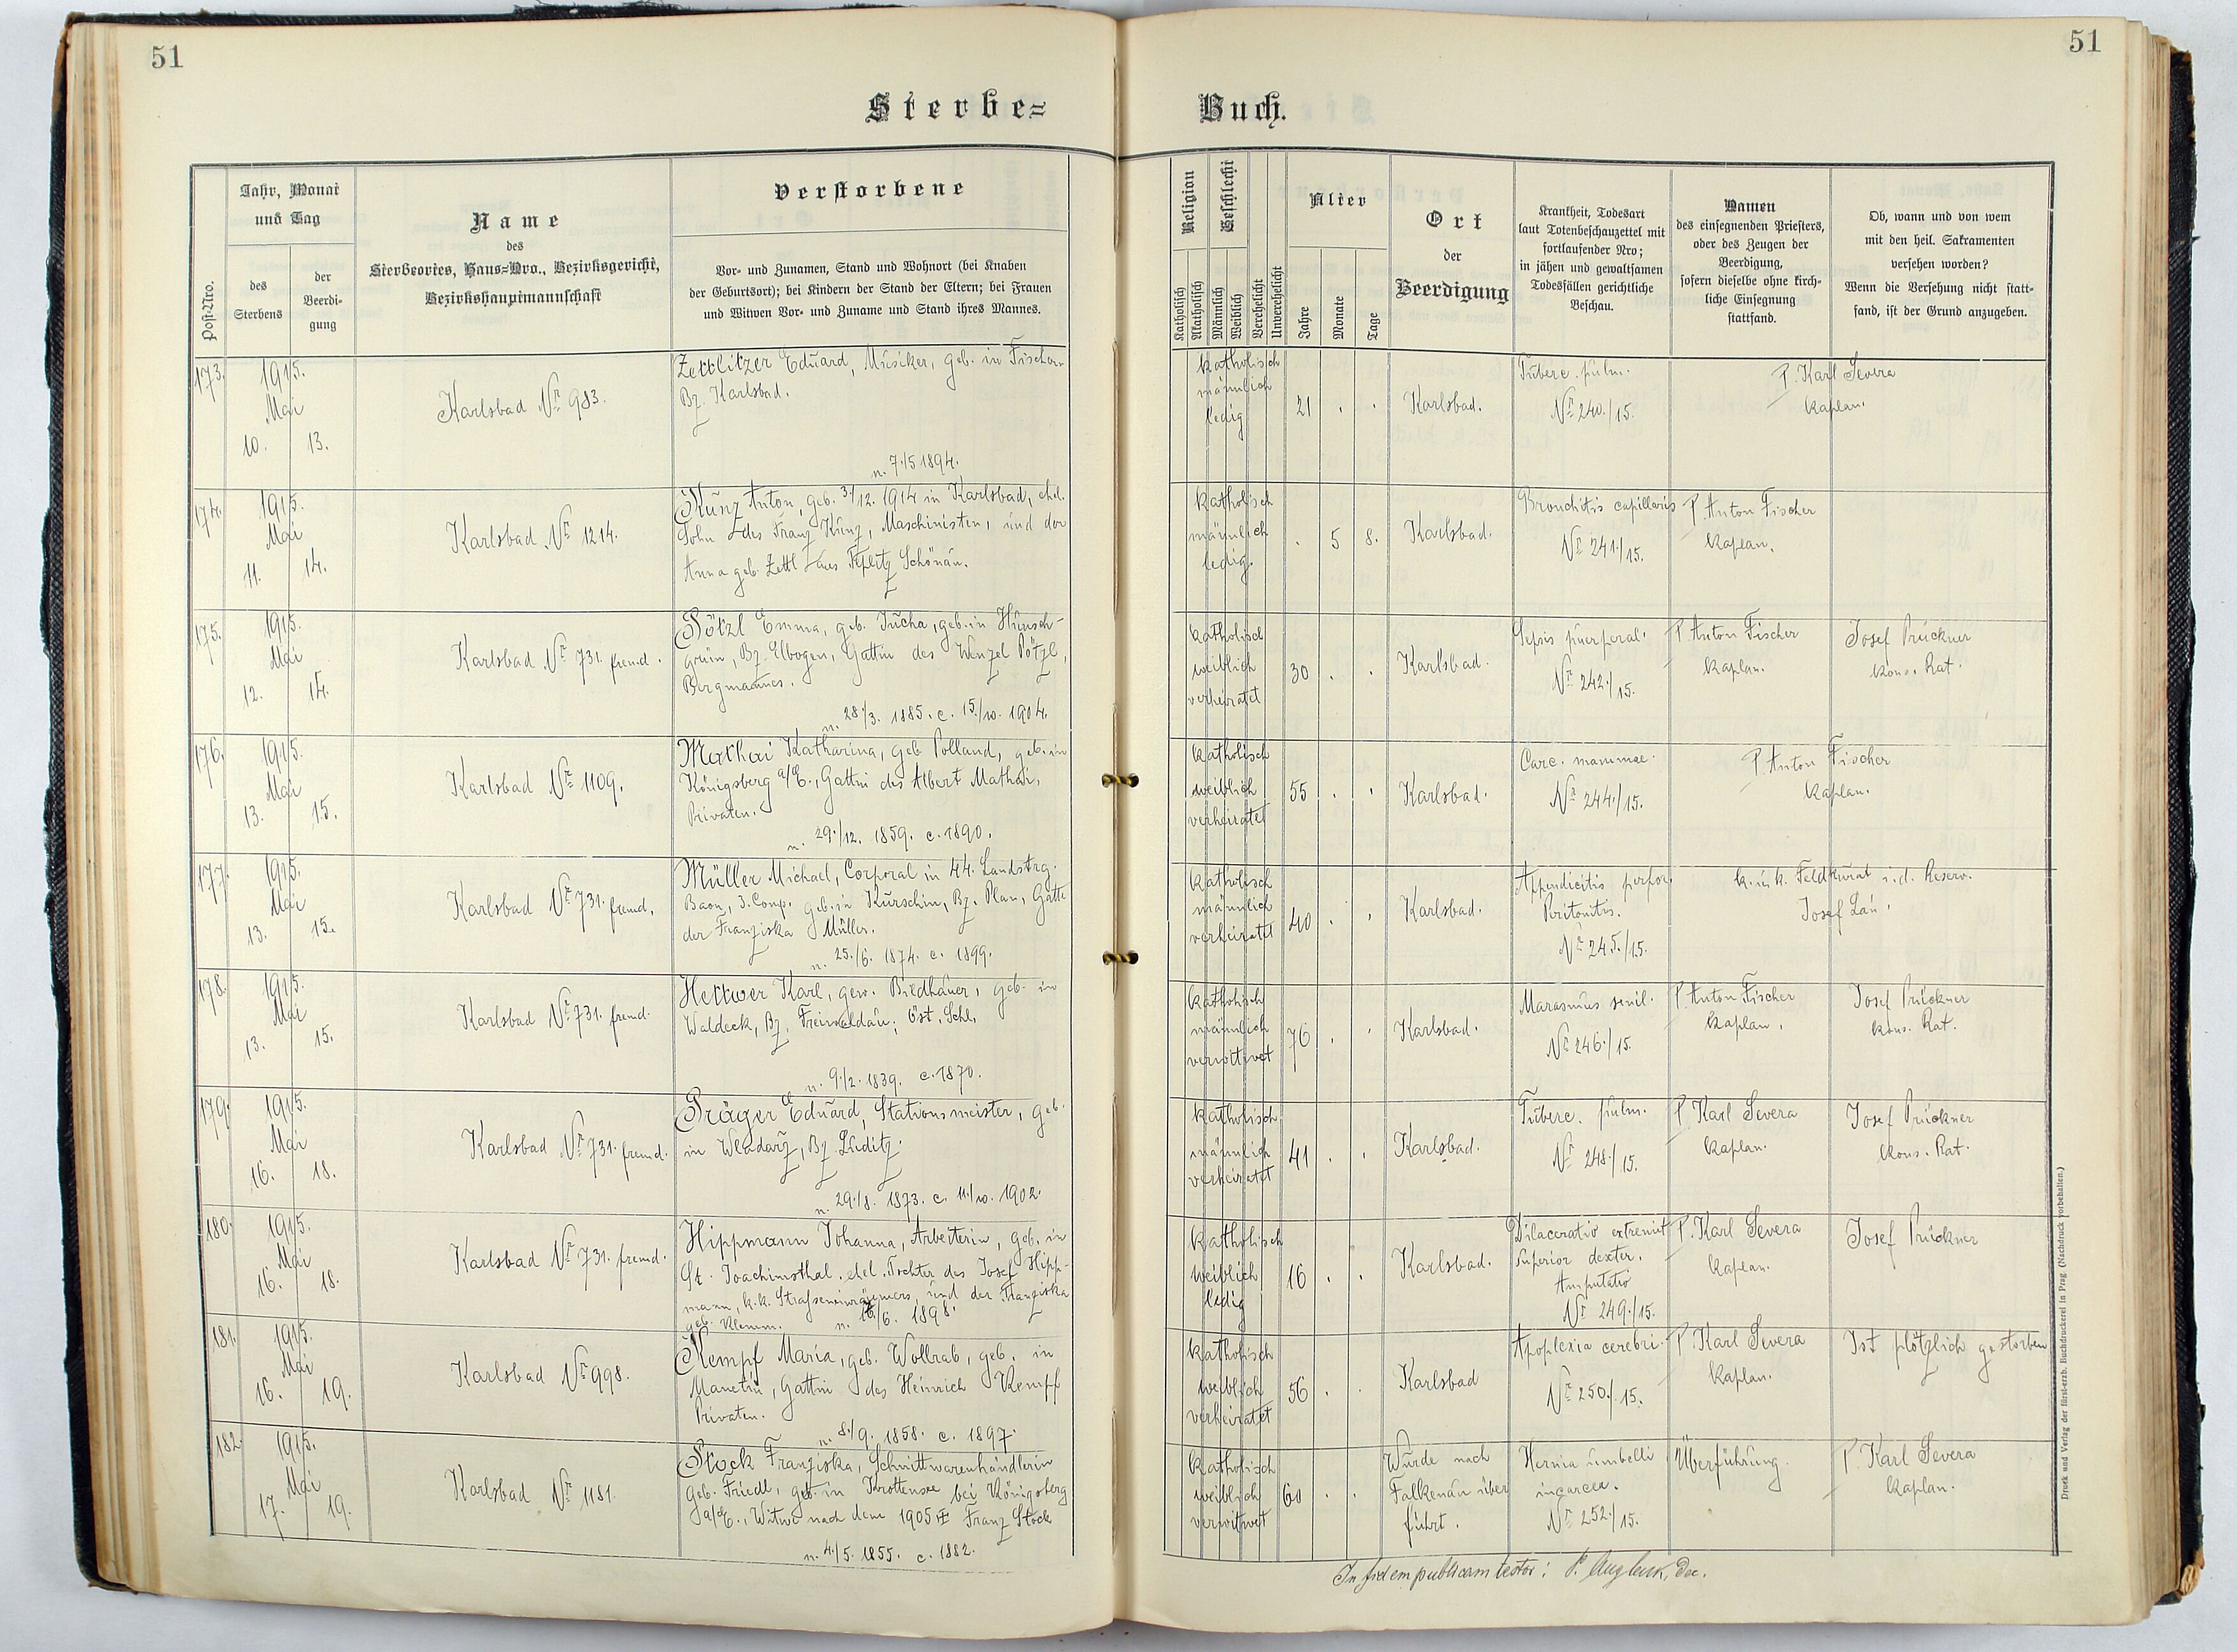 51
51
Sterbe=
Buch.
Post-Nro.
Jahr, Monat
und Tag
des
Sterbens
der
Beerdi-
gung
Name
des
Sterbeortes, Haus=Nro., Bezirksgericht,
Bezirkshauptmannschaft
Verstorbene
Vor- und Zunamen, Stand und Wohnort (bei Knaben
der Geburtsort); bei Kindern der Stand der Eltern; bei Frauen
und Witwen Vor- und Zuname und Stand ihres Mannes.
Religion
Katholisch
Akatholisch
Geschlecht
Männlich
Weiblich
Verehelicht
Unverehelicht
Alter
Jahre
Monate
Tage
Ort
der
Beerdigung
Krankheit, Todesart
laut Totenbeschauzettel mit
fortlaufender Nro;
in jähen und gewaltsamen
Todesfällen gerichtliche
Beschau.
Namen
des einsegnenden Priesters,
oder des Zeugen der
Beerdigung,
sofern dieselbe ohne kirch-
liche Einsegnung
stattfand.
Ob, wann und von wem
mit den heil. Sakramenten
versehen worden?
Wenn die Versehung nicht statt-
fand, ist der Grund anzugeben.
173.
1915.
Mai
10. 13.
Karlsbad Nr 983.
Zettlitzer Eduard, Musiker, geb. in Fischern
Bz. Karlsbad.
n. 7./5 1894.
katholisch
männlich
ledig
21 . .
Karlsbad.
Tuberc. pulm.
Nr 240./15.
P. Karl Severa
Kaplan.
174.
1915.
Mai
11. 14.
Karlsbad Nr 1214.
Kunz Anton, geb. 3./12. 1914 in Karlsbad, ehel.
Sohn des Franz Kunz, Maschinisten, und der
Anna geb. Zettl aus Teplitz Schönau.
katholisch
männlich
ledig
. 5 8.
Karlsbad.
Bronchitis capillaris
Nr 241./15.
P. Anton Fischer
Kaplan.
175.
1915.
Mai
12. 14.
Karlsbad Nr 731. fremd.
Pötzl Emma, geb. Sucha, geb. in Hunsch-
grün, Bz. Elbogen, Gattin des Wenzel Pötzl,
Bergmannes.
n. 28./3. 1885. c. 15./10. 1904.
katholisch
weiblich
verheiratet
30 . .
Karlsbad.
Sepsis puerperal.
Nr 242./15.
P. Anton Fischer
Kaplan.
Josef Prückner
kons. Rat.
176.
1915.
Mai
13. 15.
Karlsbad Nr 1109.
Mathai Katharina, geb. Polland, geb. in
Königsberg a/E., Gattin des Albert Mathai,
Privaten.
n. 29./12. 1859. c. 1890.
katholisch
weiblich
verheiratet
55 . .
Karlsbad.
Carc. mammae.
Nr 244./15.
P. Anton Fischer
Kaplan.
177.
1915.
Mai
13. 15.
Karlsbad Nr 731. fremd.
Müller Michael, Corporal in 44. Landstrg.
Baon, 3. Comp. geb. in Kurschin, Bz. Plan, Gatte
der Franziska Müller.
n. 25./6. 1874. c. 1899.
katholisch
männlich
verheiratet
40 . .
Karlsbad.
Appendicitis perfor.
Peritonitis.
Nr 245./15.
k. u. k. Feldkurat i. d. Reserv.
Josef Lau.
178.
1915.
Mai
13. 15.
Karlsbad Nr 731. fremd.
Hettwer Karl, gew. Bildhauer, geb. in
Waldeck, Bz. Freiwaldau, Öst. Schl.
n. 9./2. 1839. c. 1870.
katholisch
männlich
verwitwet
76 . .
Karlsbad.
Marasmus senil.
Nr 246./15.
P. Anton Fischer
Kaplan.
Josef Prückner
kons. Rat.
179.
1915.
Mai
16. 18.
Karlsbad Nr 731. fremd.
Präger Eduard, Stationsmeister, geb.
in Wladarz, Bz. Luditz.
n. 29./8. 1873. c. 11./10. 1902.
katholisch
männlich
verheiratet
41 . .
Karlsbad.
Tuberc. pulm.
Nr 248./15.
P. Karl Severa
Kaplan.
Josef Prückner
Kons. Rat.
180.
1915.
Mai
16. 18.
Karlsbad Nr 731. fremd.
Hippmann Johanna, Arbeiterin, geb. in
St. Joachimsthal, ehel. Tochter des Josef Hipp-
mann, k. k. Strasseneinräumers, und der Franziska
geb. Klemm. n. /6. 1898.
katholisch
weiblich
ledig
16 . .
Karlsbad.
Dilaceratio extremit
superior dexter.
Amputatio
Nr 249./15.
P. Karl Severa
Kaplan.
Josef Prückner
181.
1915.
Mai
16. 19.
Karlsbad Nr 998.
Kempf Maria, geb. Wollrab, geb. in
Manetin, Gattin des Heinrich Kempf
Privaten.
n. 8./9. 1858. c. 1897.
katholisch
weiblich
verheiratet
56 . .
Karlsbad
Apoplexia cerebri.
Nr 250./15.
P. Karl Severa
Kaplan.
Ist plötzlich gestorben
182.
1915.
Mai
17. 19.
Karlsbad Nr 1181.
Stock Franziska, Schnittwarenhändlerin
geb. Friedl, geb. in Krottensee bei Königsberg
a/E., Witwe nach dem 1905 ✝ Franz Stock
n. 4./5. 1855. c. 1882.
katholisch
weiblich
verwitwet
60 . .
Wurde nach
Falkenau über
führt.
Hernia umbelli
incarcer.
Nr 252./15.
Überführung.
P. Karl Severa
Kaplan.
In fidem publicam testor: P. Dec.
Druck und Verlag der fürst-erzb. Buchdruckerei in Prag. (Nachdruck vorbehalten.)